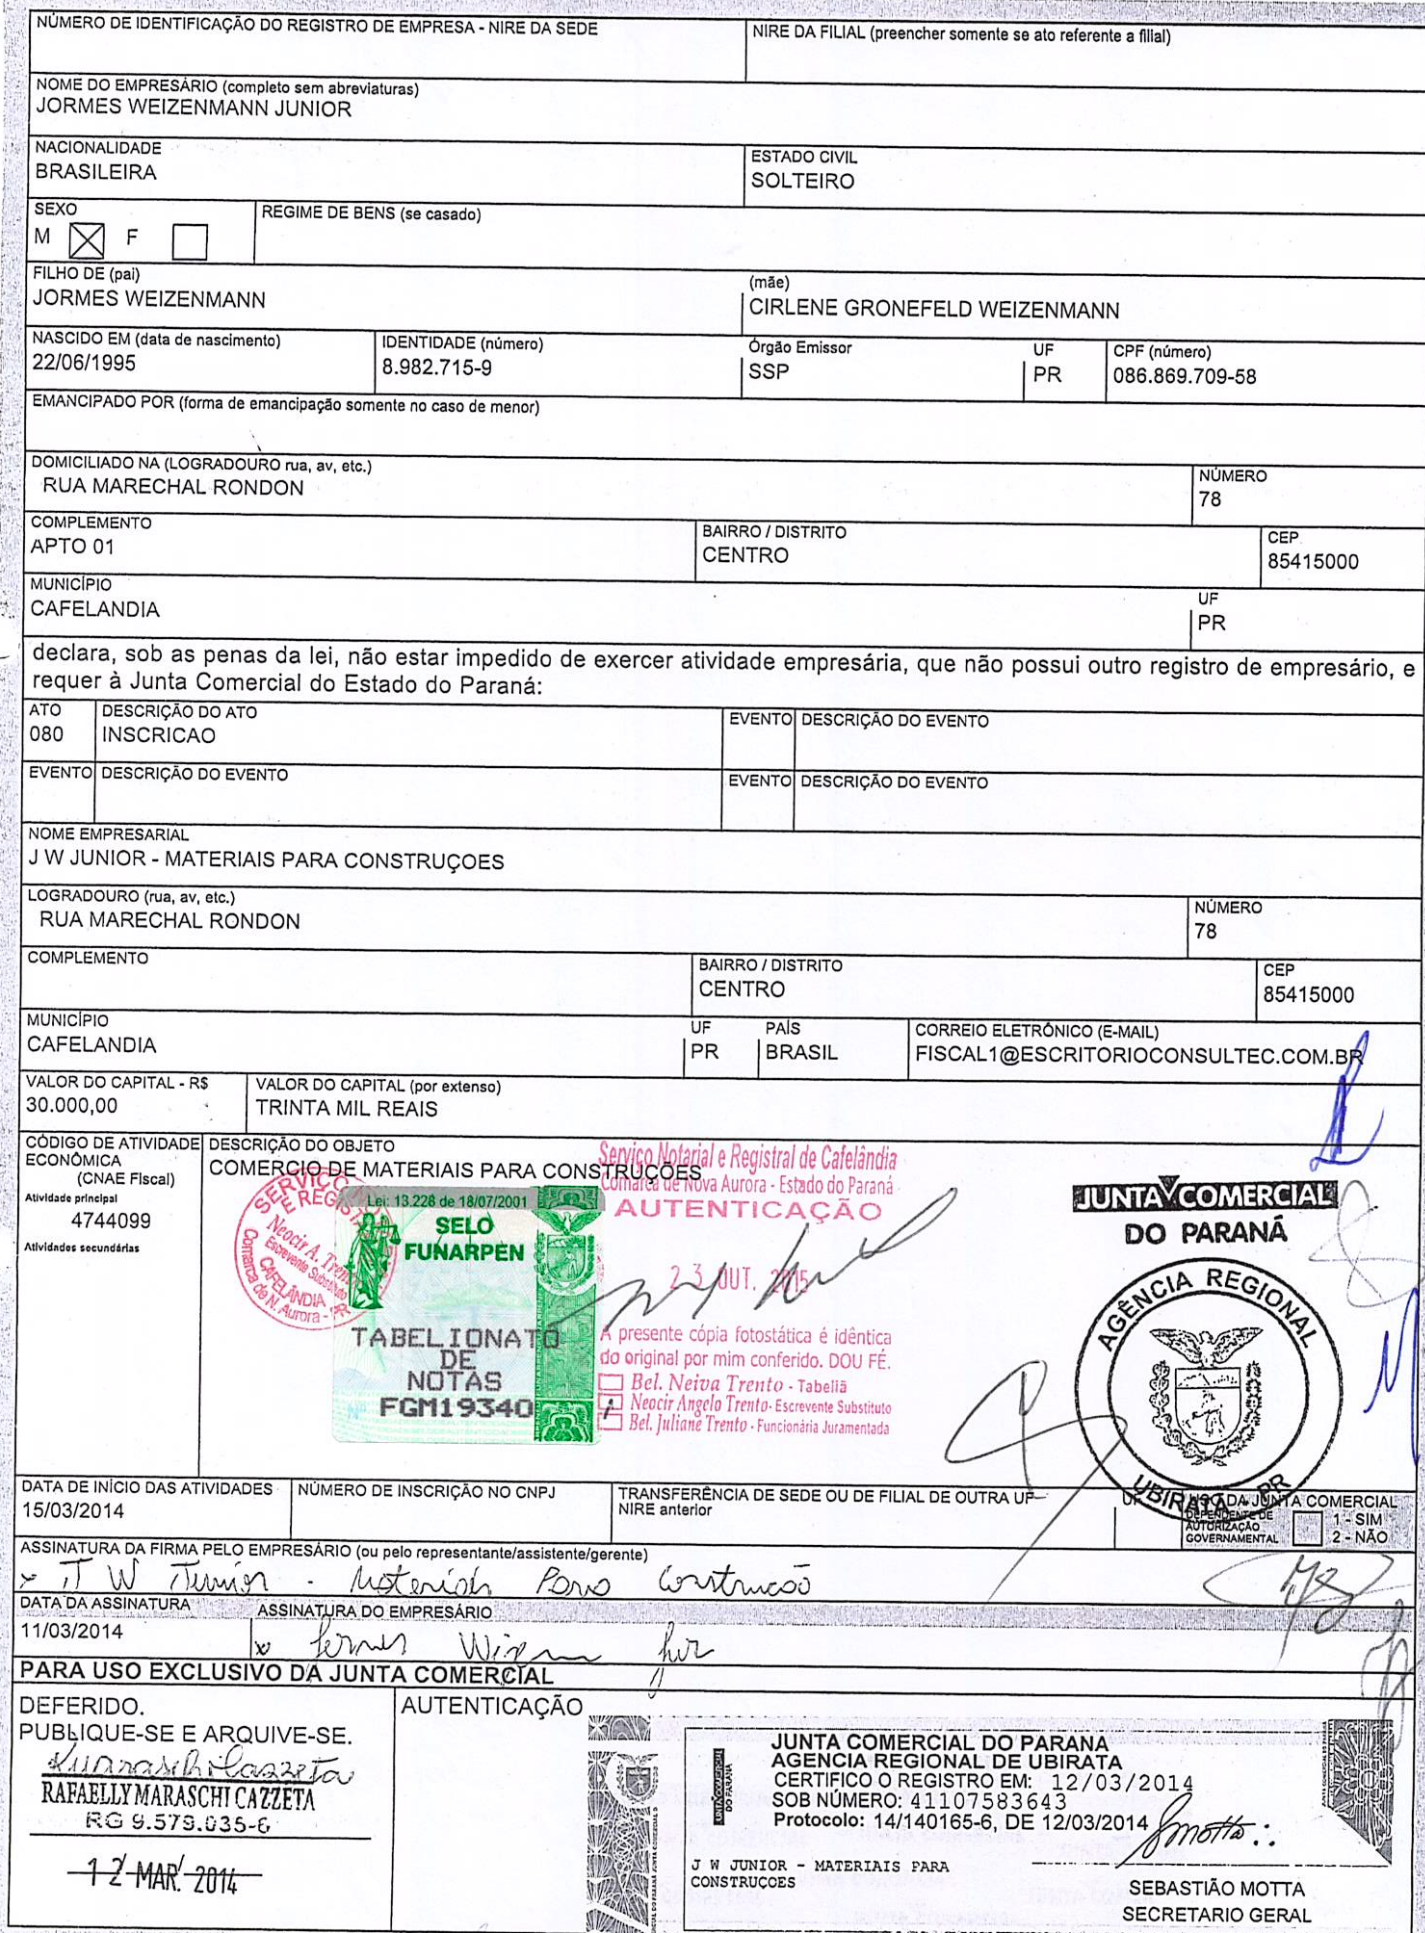 NÚMERO DE IDENTIFICAÇÃO DO REGISTRO DE EMPRESA - NIRE DA SEDE
NIRE DA FILIAL (preencher somente se ato referente a filial)
NOME DO EMPRESÁRIO (completo sem abreviaturas)
JORMES WEIZENMANN JUNIOR
NACIONALIDADE
BRASILEIRA
ESTADO CIVIL
SOLTEIRO
SEXO
M F
REGIME DE BENS (se casado)
FILHO DE (pai)
JORMES WEIZENMANN
(mãe)
CIRLENE GRONEFELD WEIZENMANN
NASCIDO EM (data de nascimento)
22/06/1995
IDENTIDADE (número)
8.982.715-9
Órgão Emissor
SSP
UF
PR
CPF (número)
086.869.709-58
EMANCIPADO POR (forma de emancipação somente no caso de menor)
DOMICILIADO NA (LOGRADOURO rua, av, etc.)
RUA MARECHAL RONDON
NÚMERO
78
COMPLEMENTO
APTO 01
BAIRRO / DISTRITO
CENTRO
CEP
85415000
MUNICÍPIO
CAFELANDIA
UF
PR
declara, sob as penas da lei, não estar impedido de exercer atividade empresária, que não possui outro registro de empresário, e
requer à Junta Comercial do Estado do Paraná:
ATO
080
DESCRIÇÃO DO ATO
INSCRICAO
EVENTO
DESCRIÇÃO DO EVENTO
EVENTO
DESCRIÇÃO DO EVENTO
EVENTO
DESCRIÇÃO DO EVENTO
NOME EMPRESARIAL
J W JUNIOR - MATERIAIS PARA CONSTRUÇOES
LOGRADOURO (rua, av, etc.)
RUA MARECHAL RONDON
NÚMERO
78
COMPLEMENTO
BAIRRO / DISTRITO
CENTRO
CEP
85415000
MUNICÍPIO
CAFELANDIA
UF
PR
PAÍS
BRASIL
CORREIO ELETRÔNICO (E-MAIL)
FISCAL1@ESCRITORIOCONSULTEC.COM.BR
VALOR DO CAPITAL - R$
30.000,00
VALOR DO CAPITAL (por extenso)
TRINTA MIL REAIS
CÓDIGO DE ATIVIDADE
ECONÔMICA
(CNAE Fiscal)
Atividade principal
4744099
Atividades secundárias
DESCRIÇÃO DO OBJETO
COMERCIO DE MATERIAIS PARA CONSTRUÇÕES
Neocir A. Trento
Escrevente Substituto
CAFELÂNDIA - PR
Comarca de N. Aurora -
Lei: 13.228 de 18/07/2001
SELO
FUNARPEN
TABELIONATO
DE
NOTAS
FGM19340
Serviço Notarial e Registral de Cafelândia
Comarca de Nova Aurora - Estado do Paraná
AUTENTICAÇÃO
23 OUT. 2015
A presente cópia fotostática é idêntica
do original por mim conferido. DOU FÉ.
Bel. Neiva Trento - Tabeliã
Neocir Angelo Trento - Escrevente Substituto
Bel. Juliane Trento - Funcionária Juramentada
JUNTA COMERCIAL
DO PARANÁ
AGÊNCIA REGIONAL
UBIRATÃ PR
DATA DE INÍCIO DAS ATIVIDADES
15/03/2014
NÚMERO DE INSCRIÇÃO NO CNPJ
TRANSFERÊNCIA DE SEDE OU DE FILIAL DE OUTRA UF
NIRE anterior
UF
USO DA JUNTA COMERCIAL
DEPENDENTE DE
AUTORIZAÇÃO
GOVERNAMENTAL
1 - SIM
2 - NÃO
ASSINATURA DA FIRMA PELO EMPRESÁRIO (ou pelo representante/assistente/gerente)
x J W Junior - Materiais Para Construcao
DATA DA ASSINATURA
11/03/2014
ASSINATURA DO EMPRESÁRIO
PARA USO EXCLUSIVO DA JUNTA COMERCIAL
DEFERIDO.
PUBLIQUE-SE E ARQUIVE-SE.
RAFAELLY MARASCHI CAZZETA
RG 9.579.035-6
12 MAR. 2014
AUTENTICAÇÃO
JUNTA COMERCIAL DO PARANA
AGENCIA REGIONAL DE UBIRATA
CERTIFICO O REGISTRO EM: 12/03/2014
SOB NÚMERO: 41107583643
Protocolo: 14/140165-6, DE 12/03/2014
J W JUNIOR - MATERIAIS PARA
CONSTRUÇOES
SEBASTIÃO MOTTA
SECRETARIO GERAL